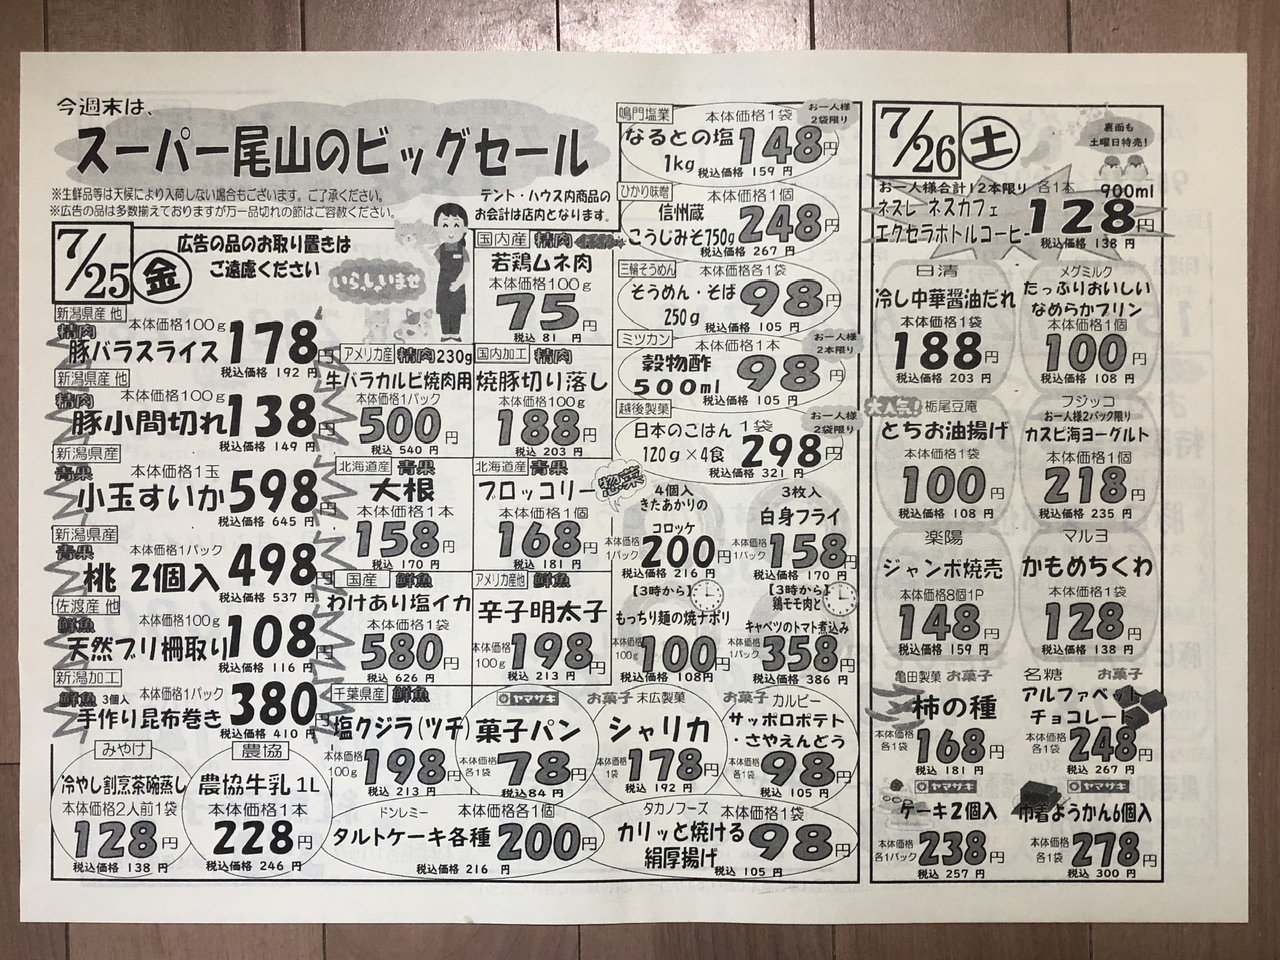 今週末は、
スーパー尾山のビッグセール
※生鮮品等は天候により入荷しない場合もございます。ご了承ください。
※広告の品は多数揃えておりますが万一品切れの節はご容赦ください。
テント・ハウス内商品の
お会計は店内となります。
7/25 金
広告の品のお取り置きは
ご遠慮ください
いらっしいませ
新潟県産 他
精肉
本体価格100g
豚バラスライス 178円
税込価格 192 円
新潟県産 他
精肉
本体価格100g
豚小間切れ 138円
税込価格 149 円
新潟県産
青果
本体価格1玉
小玉すいか 598円
税込価格 645 円
新潟県産
青果
本体価格1パック
桃 2個入 498円
税込価格 537 円
佐渡産 他
鮮魚
本体価格100g
天然ブリ柵取り 108円
税込価格 116 円
新潟加工
鮮魚 3個入
本体価格1パック
手作り昆布巻き 380円
税込価格 410 円
国内産 精肉
若鶏ムネ肉
本体価格100g
75円
税込 81 円
アメリカ産 精肉 230g
牛バラカルビ焼肉用
本体価格1パック
500円
税込 540 円
国内加工 精肉
焼豚切り落し
本体価格100g
188円
税込 203 円
北海道産 青果
大根
本体価格1本
158円
税込 170 円
北海道産 青果
ブロッコリー
本体価格1個
168円
税込 181 円
国産 鮮魚
わけあり塩イカ
本体価格1袋
580円
税込 626 円
アメリカ産他 鮮魚
辛子明太子
本体価格100g
198円
税込 213 円
千葉県産 鮮魚
塩クジラ(ツチ)
本体価格100g
198円
税込 213 円
ヤマザキ
菓子パン
本体価格各1袋
78円
税込84 円
お菓子 末広製菓
シャリカ
本体価格1袋
178円
税込 192 円
お菓子 カルビー
サッポロポテト
・さやえんどう
本体価格各1袋
98円
税込 105 円
みやけ
冷やし割烹茶碗蒸し
本体価格2人前1袋
128円
税込価格 138 円
農協
農協牛乳 1L
本体価格1本
228円
税込価格 246 円
ドンレミー 本体価格各1個
タルトケーキ各種 200円
税込価格 216 円
タカノフーズ 本体価格1袋
カリッと焼ける
絹厚揚げ
98円
税込 105 円
鳴門塩業 本体価格1袋
お一人様
2袋限り
なるとの塩
1kg
148円
税込価格 159 円
ひかり味噌 本体価格1袋
信州蔵
こうじみそ750g
248円
税込価格 267 円
三輪そうめん 本体価格各1袋
そうめん・そば
250g
98円
税込価格 105 円
ミツカン 本体価格1本
お一人様
2本限り
穀物酢
500ml
98円
税込価格 105 円
越後製菓
お一人様
2袋限り
日本のごはん 1袋
120g×4食 298円
税込価格 321 円
惣菜
4個入
きたあかりの
コロッケ
本体価格1パック
200円
税込価格 216 円
3枚入
白身フライ
本体価格1パック
158円
税込価格 170 円
【3時から】
もっちり麺の焼ナポリ
本体価格100g
100円
税込価格 108円
【3時から】
鶏モモ肉と
キャベツのトマト煮込み
本体価格1パック
358円
税込価格 386 円
7/26 土
裏面も
土曜日特売！
お一人様合計12本限り 各1本 900ml
ネスレ ネスカフェ
エクセラボトルコーヒー 128円
税込価格 138 円
日清
冷し中華醤油だれ
本体価格1袋
188円
税込価格 203 円
メグミルク
たっぷりおいしい
なめらかプリン
本体価格1個
100円
税込価格 108 円
大人気！
栃尾豆庵
とちお油揚げ
本体価格1袋
100円
税込価格 108 円
フジッコ
お一人様2パック限り
カスピ海ヨーグルト
本体価格1個
218円
税込価格 235 円
楽陽
ジャンボ焼売
本体価格8個1P
148円
税込価格 159 円
マルヨ
かもめちくわ
本体価格1袋
128円
税込価格 138 円
亀田製菓 お菓子
柿の種
本体価格各1袋
168円
税込 181 円
名糖 お菓子
アルファベット
チョコレート
本体価格各1袋
248円
税込 267 円
ヤマザキ
ケーキ2個入
本体価格各1パック
238円
税込 257 円
ヤマザキ
巾着ようかん6個入
本体価格各1袋
278円
税込 300 円